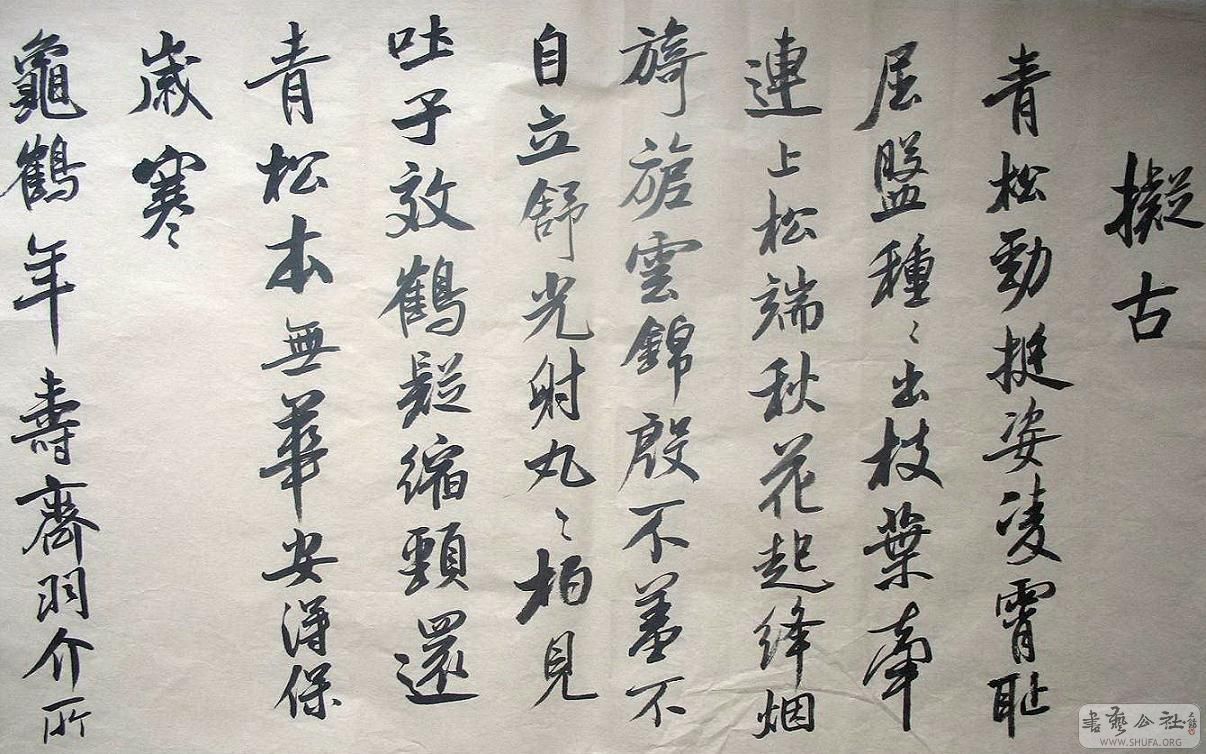 擬古
青松勁挺姿凌霄耻
屈盤種々出枝葉牽
連上松端秋花起絳烟
旖旎雲錦殷不羞不
自立舒光射丸々柏見
吐子效鶴疑縮頸還
青松本無華安得保
歲寒
龜鶴年壽齊羽介所
書藝公社
WWW.SHUFA.ORG